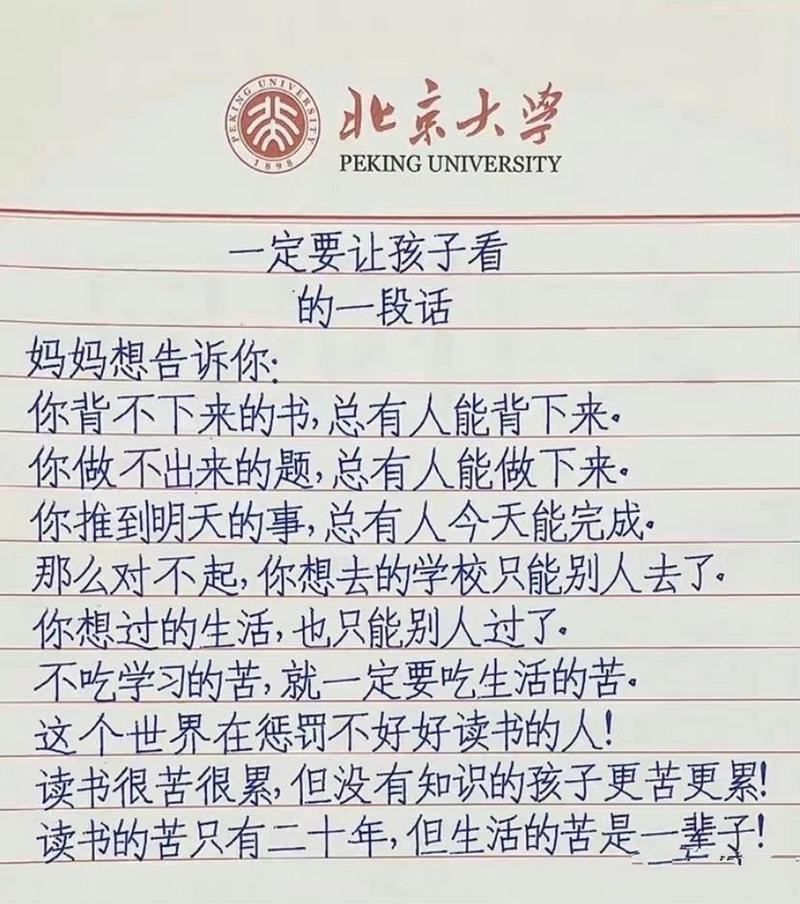 PEKING UNIVERSITY
1898
北京大学
PEKING UNIVERSITY
一定要让孩子看
的一段话
妈妈想告诉你:
你背不下来的书,总有人能背下来。
你做不出来的题,总有人能做下来。
你推到明天的事,总有人今天能完成。
那么对不起,你想去的学校只能别人去了。
你想过的生活,也只能别人过了。
不吃学习的苦,就一定要吃生活的苦。
这个世界在惩罚不好好读书的人!
读书很苦很累,但没有知识的孩子更苦更累!
读书的苦只有二十年,但生活的苦是一辈子!